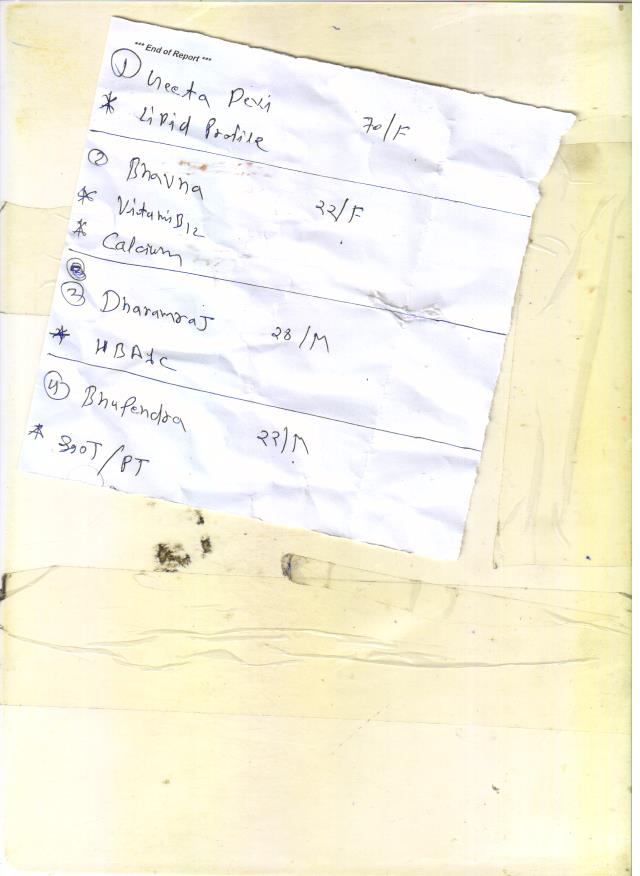 *** End of Report ***
① Neeta Devi 70/F
* Lipid Profile
② Bhavna 22/F
* Vitamin B12
* Calcium
③ Dharamraj 28/M
* HBA1C
④ Bhupendra 22/M
* SGOT/PT